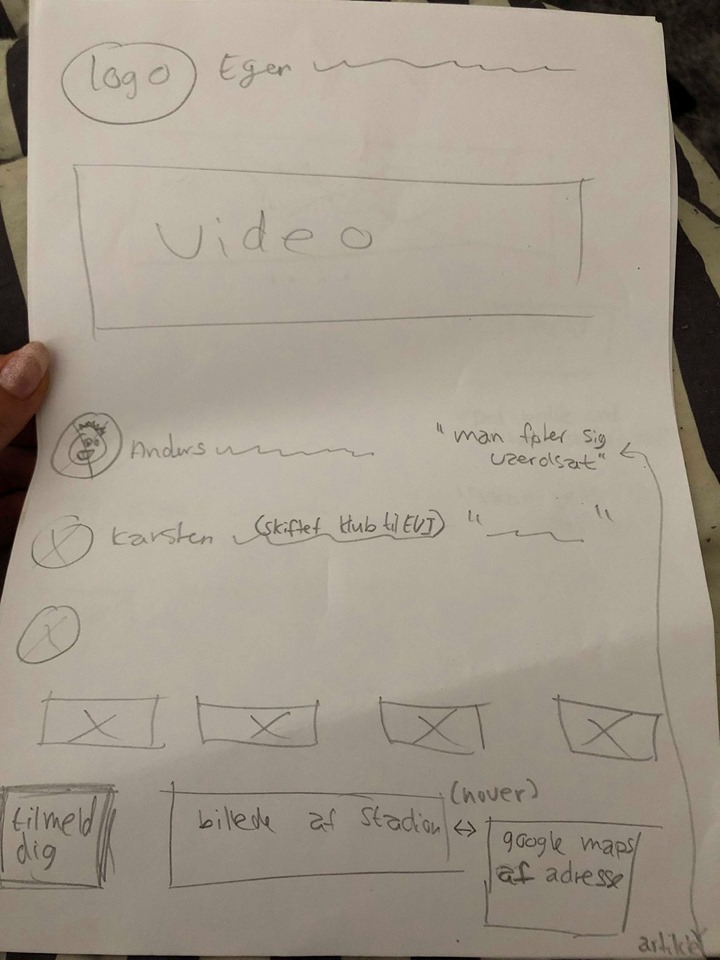 logo Eger
Video
Anders
"man føler sig
uzerolsat"
Karsten (skiftet klub til EVI) " "
(hover)
tilmeld
dig
billede af Stadion
google maps
af adresse
artikel